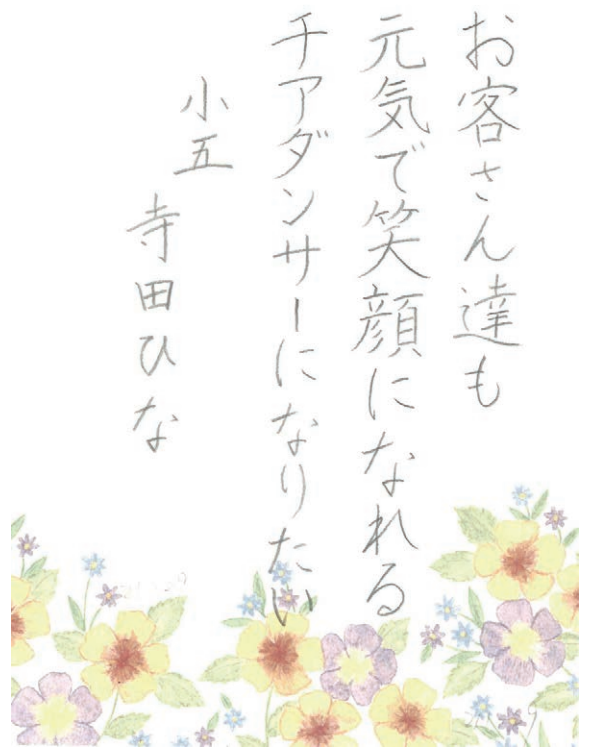 お客さん達も
元気で笑顔になれる
チアダンサーになりたい
小五
寺田ひな